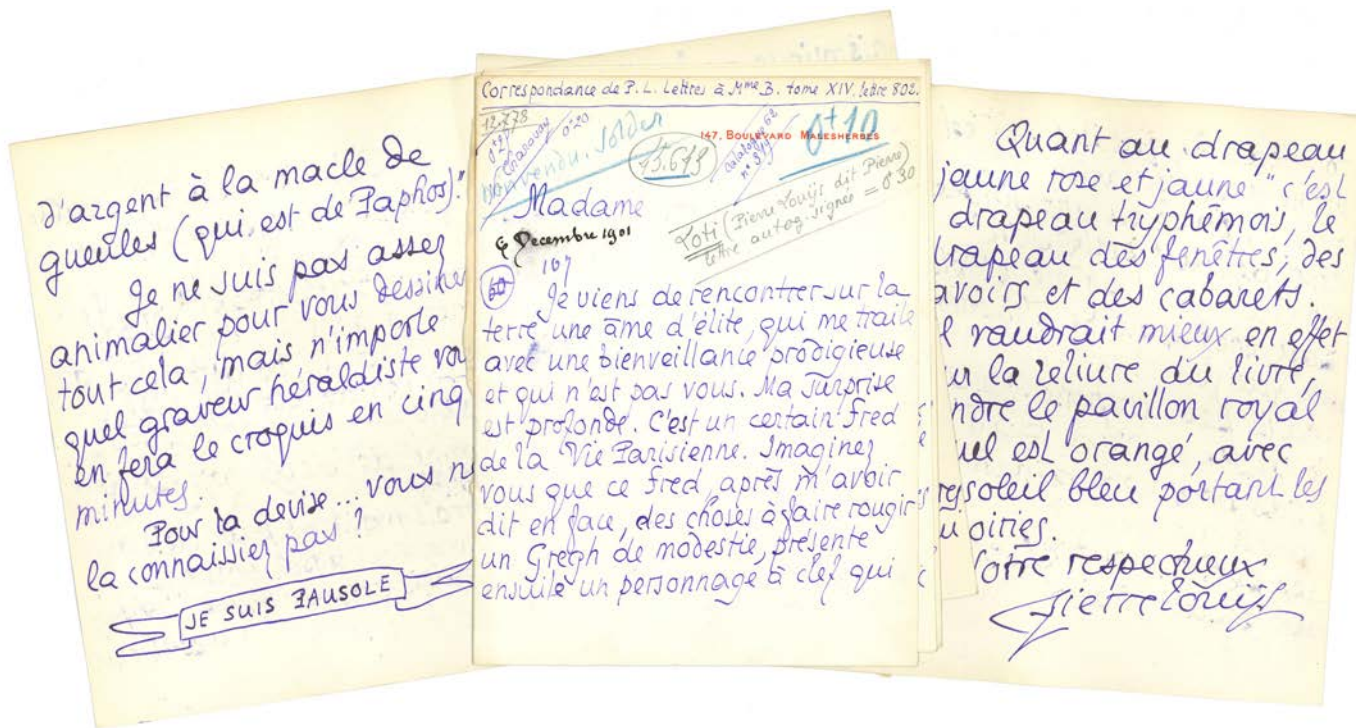 d'argent à la macle de
gueules (qui est de Paphos)."
Je ne suis pas assez
animalier pour vous dessiner
tout cela, mais n'importe
quel graveur héraldiste vou
en fera le croquis en cinq
minutes.
Pour la devise... vous n
la connaissiez pas ?
JE SUIS PAUSOLE
Correspondance de P. L. Lettres à Mme B. tome XIV. lettre 802.
12.778
0+20
non vendu. Solder
15.619
147, BOULEVARD MALESHERBES
0+10
Catalogue 62
Madame
Loti (Pierre Louÿs dit Pierre)
lettre autog. signée = 0+30
6 Decembre 1901
107
60
Je viens de rencontrer sur la
terre une âme d'élite, qui me traite
avec une bienveillance prodigieuse
et qui n'est pas vous. Ma surprise
est profonde. C'est un certain Fred
de la Vie Parisienne. Imaginez
vous que ce Fred, après m'avoir
dit en face, des choses à faire rougir
un Gregh de modestie, présente
ensuite un personnage à clef qui
Quant au drapeau
jaune rose et jaune" c'est
drapeau tryphêmois, le
drapeau des fenêtres, des
avoirs et des cabarets.
l vaudrait mieux en effet
ur la reliure du livre,
ndre le pavillon royal
uel est orangé, avec
soleil bleu portant les
oiries.
Votre respectueux
Pierre Louÿs